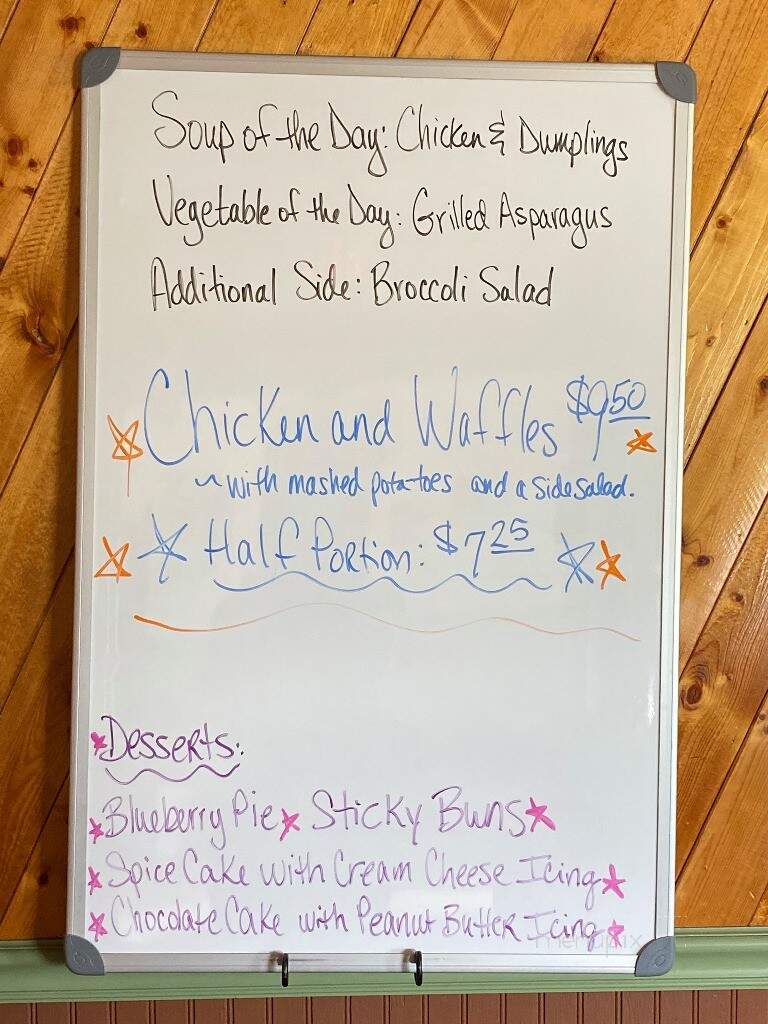 Soup of the Day: Chicken & Dumplings
Vegetable of the Day: Grilled Asparagus
Additional Side: Broccoli Salad
Chicken and Waffles $9.50
~with mashed potatoes and a side salad.
Half Portion: $7.25
Desserts:
Blueberry Pie Sticky Buns
Spice Cake with Cream Cheese Icing
Chocolate Cake with Peanut Butter Icing
menupix